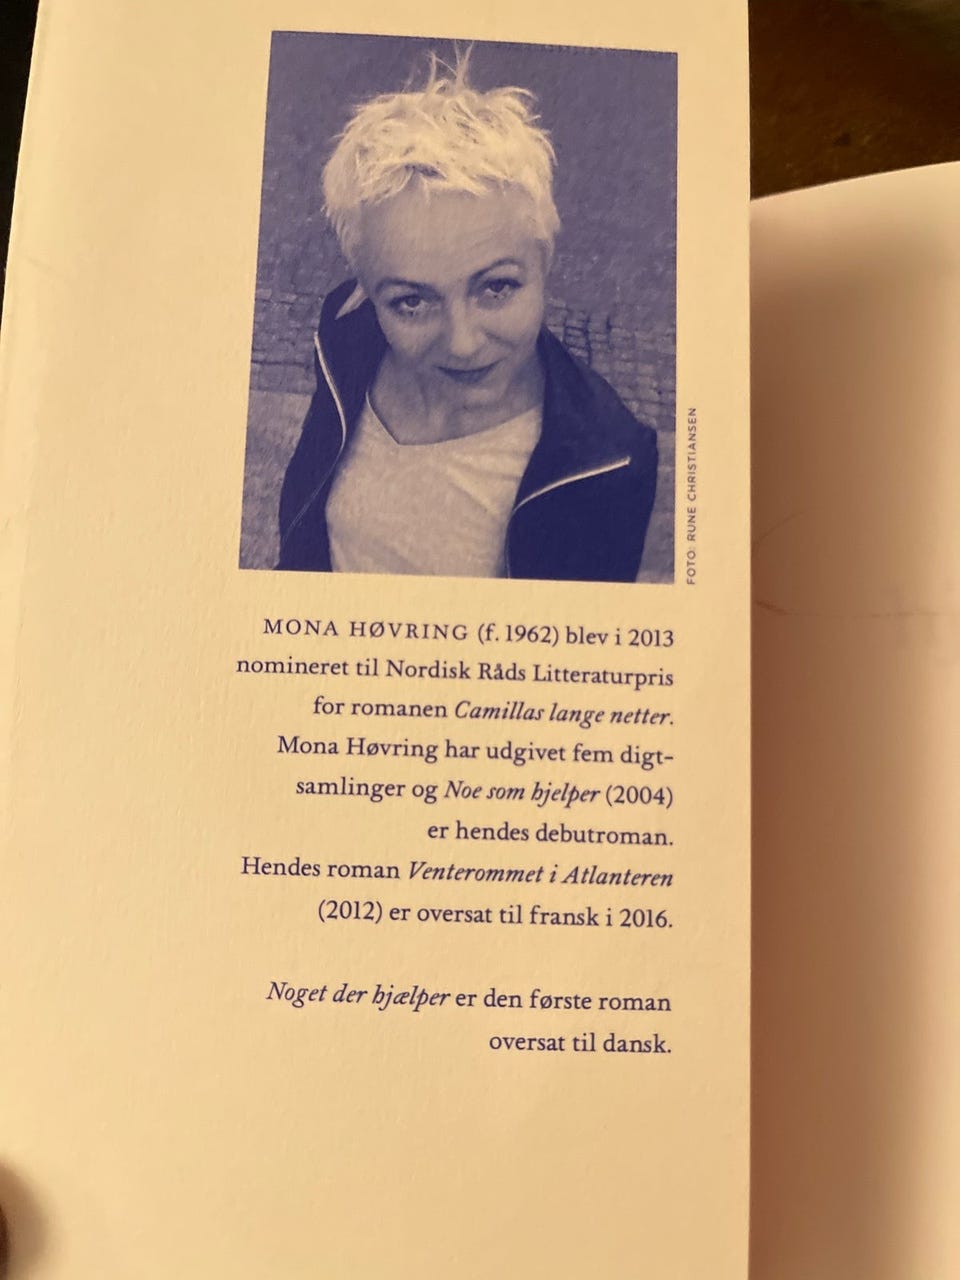 FOTO: RUNE CHRISTIANSEN
MONA HØVRING (f. 1962) blev i 2013
nomineret til Nordisk Råds Litteraturpris
for romanen Camillas lange netter.
Mona Høvring har udgivet fem digt-
samlinger og Noe som hjelper (2004)
er hendes debutroman.
Hendes roman Venterommet i Atlanteren
(2012) er oversat til fransk i 2016.
Noget der hjælper er den første roman
oversat til dansk.